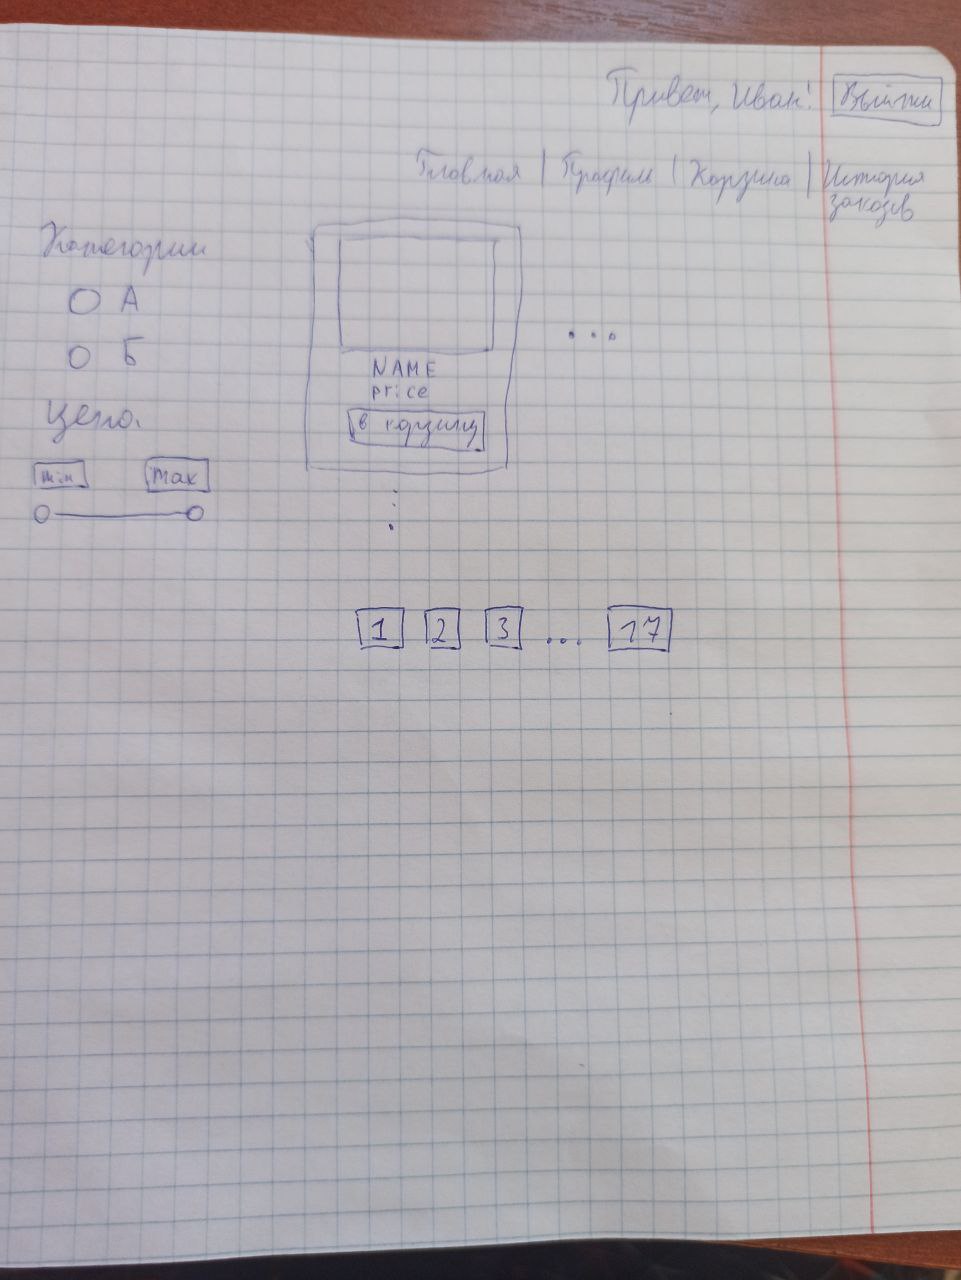 Привет, Иван! Выйти
Главная | Профиль | Корзина | История заказов
Категории
А
Б
Цена
min max
NAME
price
в корзину
...
1 2 3 ... 17